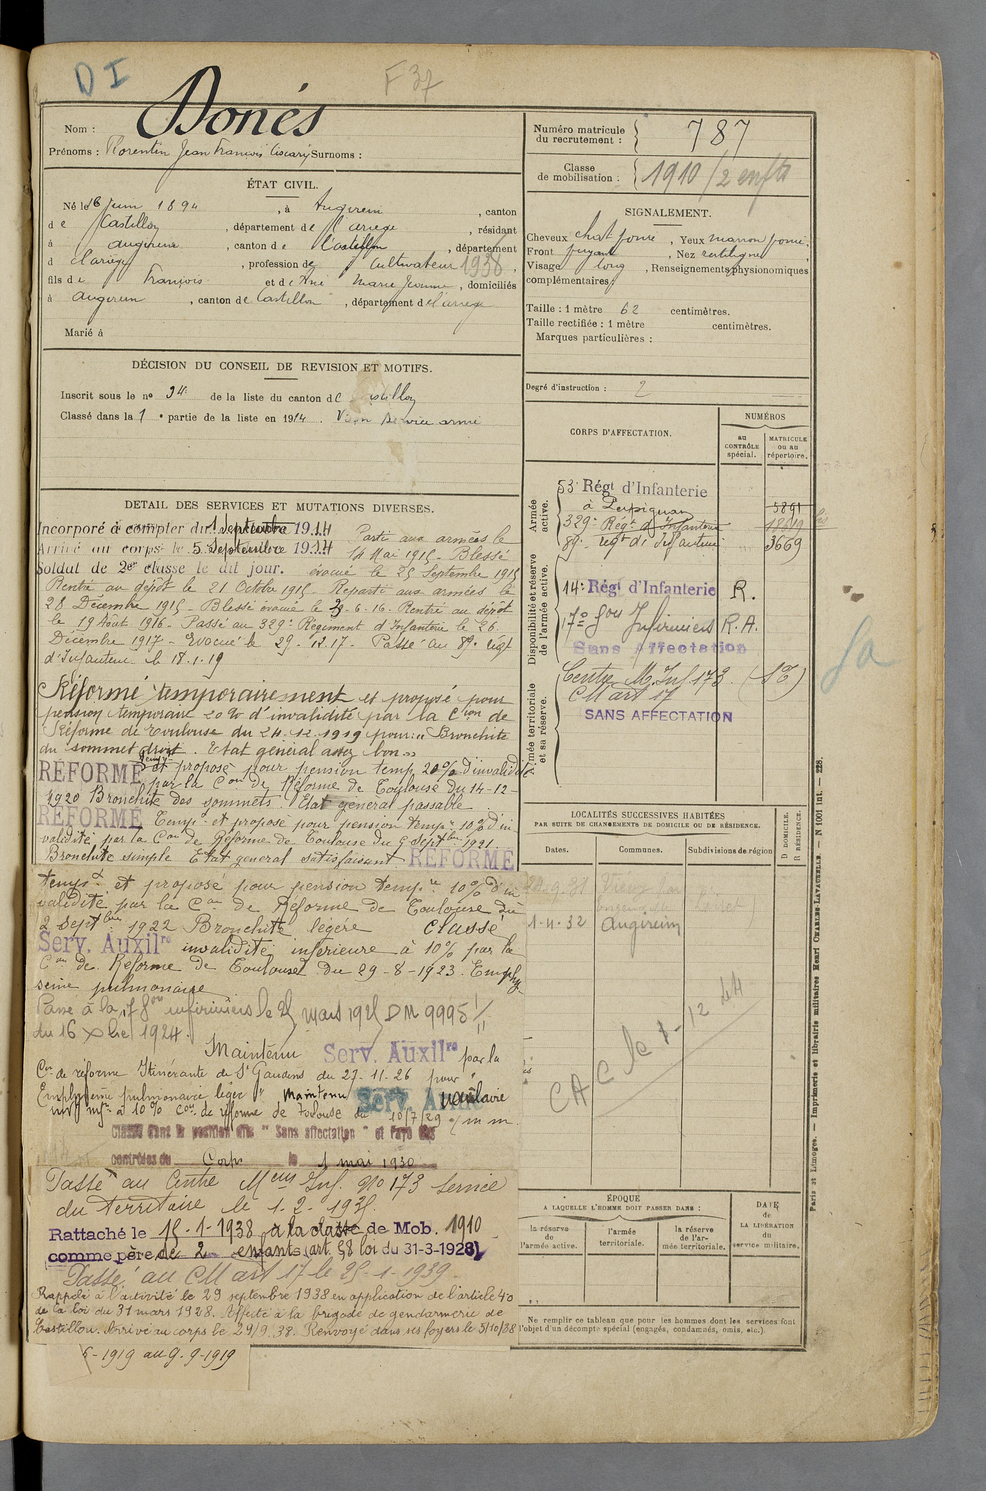 D I
F 37
Nom : Donés
Prénoms : Florentin Jean François Surnoms :
ÉTAT CIVIL.
Né le 16 Juin 1894, à Augirein, canton
de Castillon, département de l'Ariège, résidant
à augirein, canton de Castillon, département
d l'ariège, profession de Cultivateur 1938.
fils de François et de Ané Marie Jeanne, domiciliés
à augirein, canton de Castillon, département de l'ariège
Marié à
DÉCISION DU CONSEIL DE REVISION ET MOTIFS.
Inscrit sous le nº 34 de la liste du canton de Castillon
Classé dans la 1e partie de la liste en 1914. Bon Service armé
DETAIL DES SERVICES ET MUTATIONS DIVERSES.
Incorporé à compter du 1 septembre 1914
Arrivé au corps le 5 Septembre 1914
Soldat de 2e classe le dit jour.
Parti aux armées le
14 Mai 1915 - Blessé
évacué le 25 Septembre 1915
Rentré au dépôt le 21 Octobre 1915 - Reparti aux armées le
28 Décembre 1915 - Blessé évacué le 23-6-16. Rentré au dépôt
le 19 Aout 1916 - Passé au 329e Régiment d'Infanterie le 26
Décembre 1917 - Evacué le 29-12-17. Passé au 89e régt
d'Infanterie le 18-1-19
Réformé temporairement et proposé pour
pension temporaire 20 % d'invalidité par la Cion de
Réforme de Toulouse du 24.12.1919 pour: "Bronchite
du sommet droit. Etat général assez bon"
RÉFORMÉ temp et proposé pour pension temp. 20% d'invalidité
par la Con de Réforme de Toulouse du 14-12-
1920 Bronchite des sommets. Etat général passable
RÉFORMÉ Temp et proposé pour pension tempre 10% d'in
validité par la Con de Réforme de Toulouse du 9 Septbre 1921.
Bronchite simple Etat général satisfaisant RÉFORMÉ
temp et proposé pour pension tempre 10% d'in
validité par la Con de Réforme de Toulouse du
2 Septbre 1922 Bronchite légère Classé
Serv. Auxilre invalidité inférieure à 10% par la
Con de Réforme de Toulouse du 29-8-1923. Emphy
sème pulmonaire
Passé à la 17 Son infirmiers le 25 mars 1925 DM 9995
du 16 Xbre 1924.
Maintenu Serv. Auxilre par la
Con de réforme Itinérante de St Gaudens du 27.11.26 pour
Emphysème pulmonaire léger Maintenu Serv. Armé
inf à 10% con de réforme de toulouse du 10/7/29 / m m.
Classé dans la position dite "Sans affectation" et rayé des
contrôles du Corps le 1 mai 1930
Passé au Centre Inf. No 173 Service
du Territoire le 1-2-1935.
Rattaché le 15-1-1938 à la classe de Mob. 1910
comme père de 2 enfants (art. 58 loi du 31-3-1928)
Passé au CM art 17 le 25-1-1939.
Rappelé à l'activité le 29 septembre 1938 en application de l'article 40
de la loi du 31 mars 1928. Affecté à la brigade de gendarmerie de
Castillon. Arrivé au corps le 29/9.38. Renvoyé dans ses foyers le 5/10/38
-1919 au 9-9-1919
Numéro matricule du recrutement : 787
Classe de mobilisation : 1910 / 2 enfts
SIGNALEMENT.
Cheveux chat foncé, Yeux marron foncé,
Front fuyant, Nez rectiligne
Visage long, Renseignements physionomiques
complémentaires :
Taille : 1 mètre 62 centimètres.
Taille rectifiée : 1 mètre centimètres.
Marques particulières :
Degré d'instruction : 2
CORPS D'AFFECTATION.
NUMÉROS
au CONTRÔLE spécial.
MATRICULE OU AU répertoire.
Armée active.
53e Régt d'Infanterie
à Perpignan 5891
329e Régt d'Infanterie
89e régt d'infanterie 3669
Disponibilité et réserve de l'armée active.
14e Régt d'Infanterie R.
17e Son Infirmiers R.A.
Sans Affectation
Armée territoriale et sa réserve.
Centre M. Inf 173 (ST)
CM art 17
SANS AFFECTATION
Sa
LOCALITÉS SUCCESSIVES HABITÉES
PAR SUITE DE CHANGEMENTS DE DOMICILE OU DE RÉSIDENCE.
Dates. Communes. Subdivisions de région D DOMICILE. R RÉSIDENCE.
1-4-32 Augirein
CAC le 1-12 44
ÉPOQUE
A LAQUELLE L'HOMME DOIT PASSER DANS :
la réserve de l'armée active.
l'armée territoriale.
la réserve de l'armée territoriale.
DATE de LA LIBÉRATION du service militaire.
Ne remplir ce tableau que pour les hommes dont les services font
l'objet d'un décompte spécial (engagés, condamnés, omis, etc.).
Paris et Limoges. — Imprimerie et librairie militaires Henri CHARLES-LAVAUZELLE. — N 1007 int. — 228.